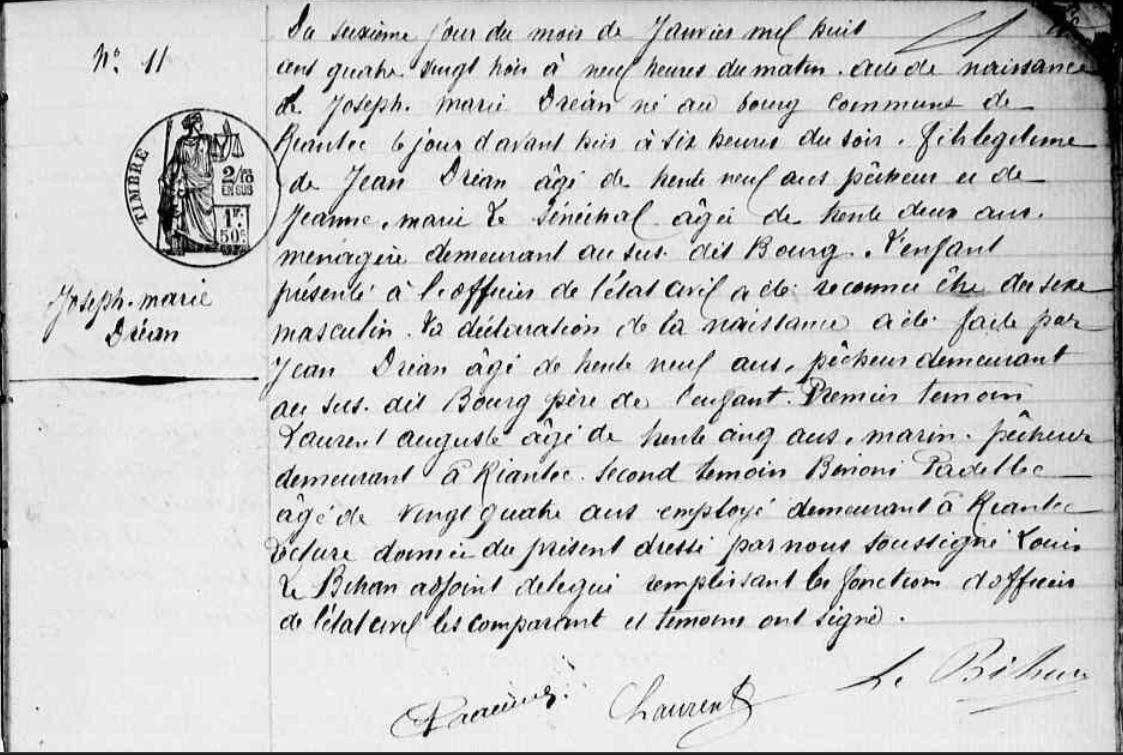 Nº 11
TIMBRE
2/10
EN SUS
1F.
50c
Joseph. marie
Dréan
Du seixième jour du mois de Janvier mil huit
cent quatre. vingt trois à neuf heures du matin. acte de naissance
de Joseph. marie Dréan né au bourg commune de
Riantec le jour d'avant hier à six heures du soir. fils legitime
de Jean Dréan âgé de trente neuf ans pêcheur et de
Jeanne. marie Le Sénéchal âgée de trente deux ans.
menagère demeurant au sus. dit Bourg. L'enfant
présenté à l'officier de l'état civil a été reconnu être du sexe
masculin. La déclaration de la naissance a été faite par
Jean Dréan âgé de trente neuf ans, pêcheur demeurant
au sus. dit Bourg père de l'enfant. Premier temoin
Laurent auguste âgé de trente cinq ans, marin. pêcheur
demeurant à Riantec. second temoin Benoni Padellec
âgé de vingt quatre ans employé demeurant à Riantec
Lecture donnée du présent dressé par nous soussigné Louis
Le Bihan adjoint delegué remplissant les fonctions d'officier
de l'état civil les comparant et temoins ont signé.
Laurent
Le Bihan